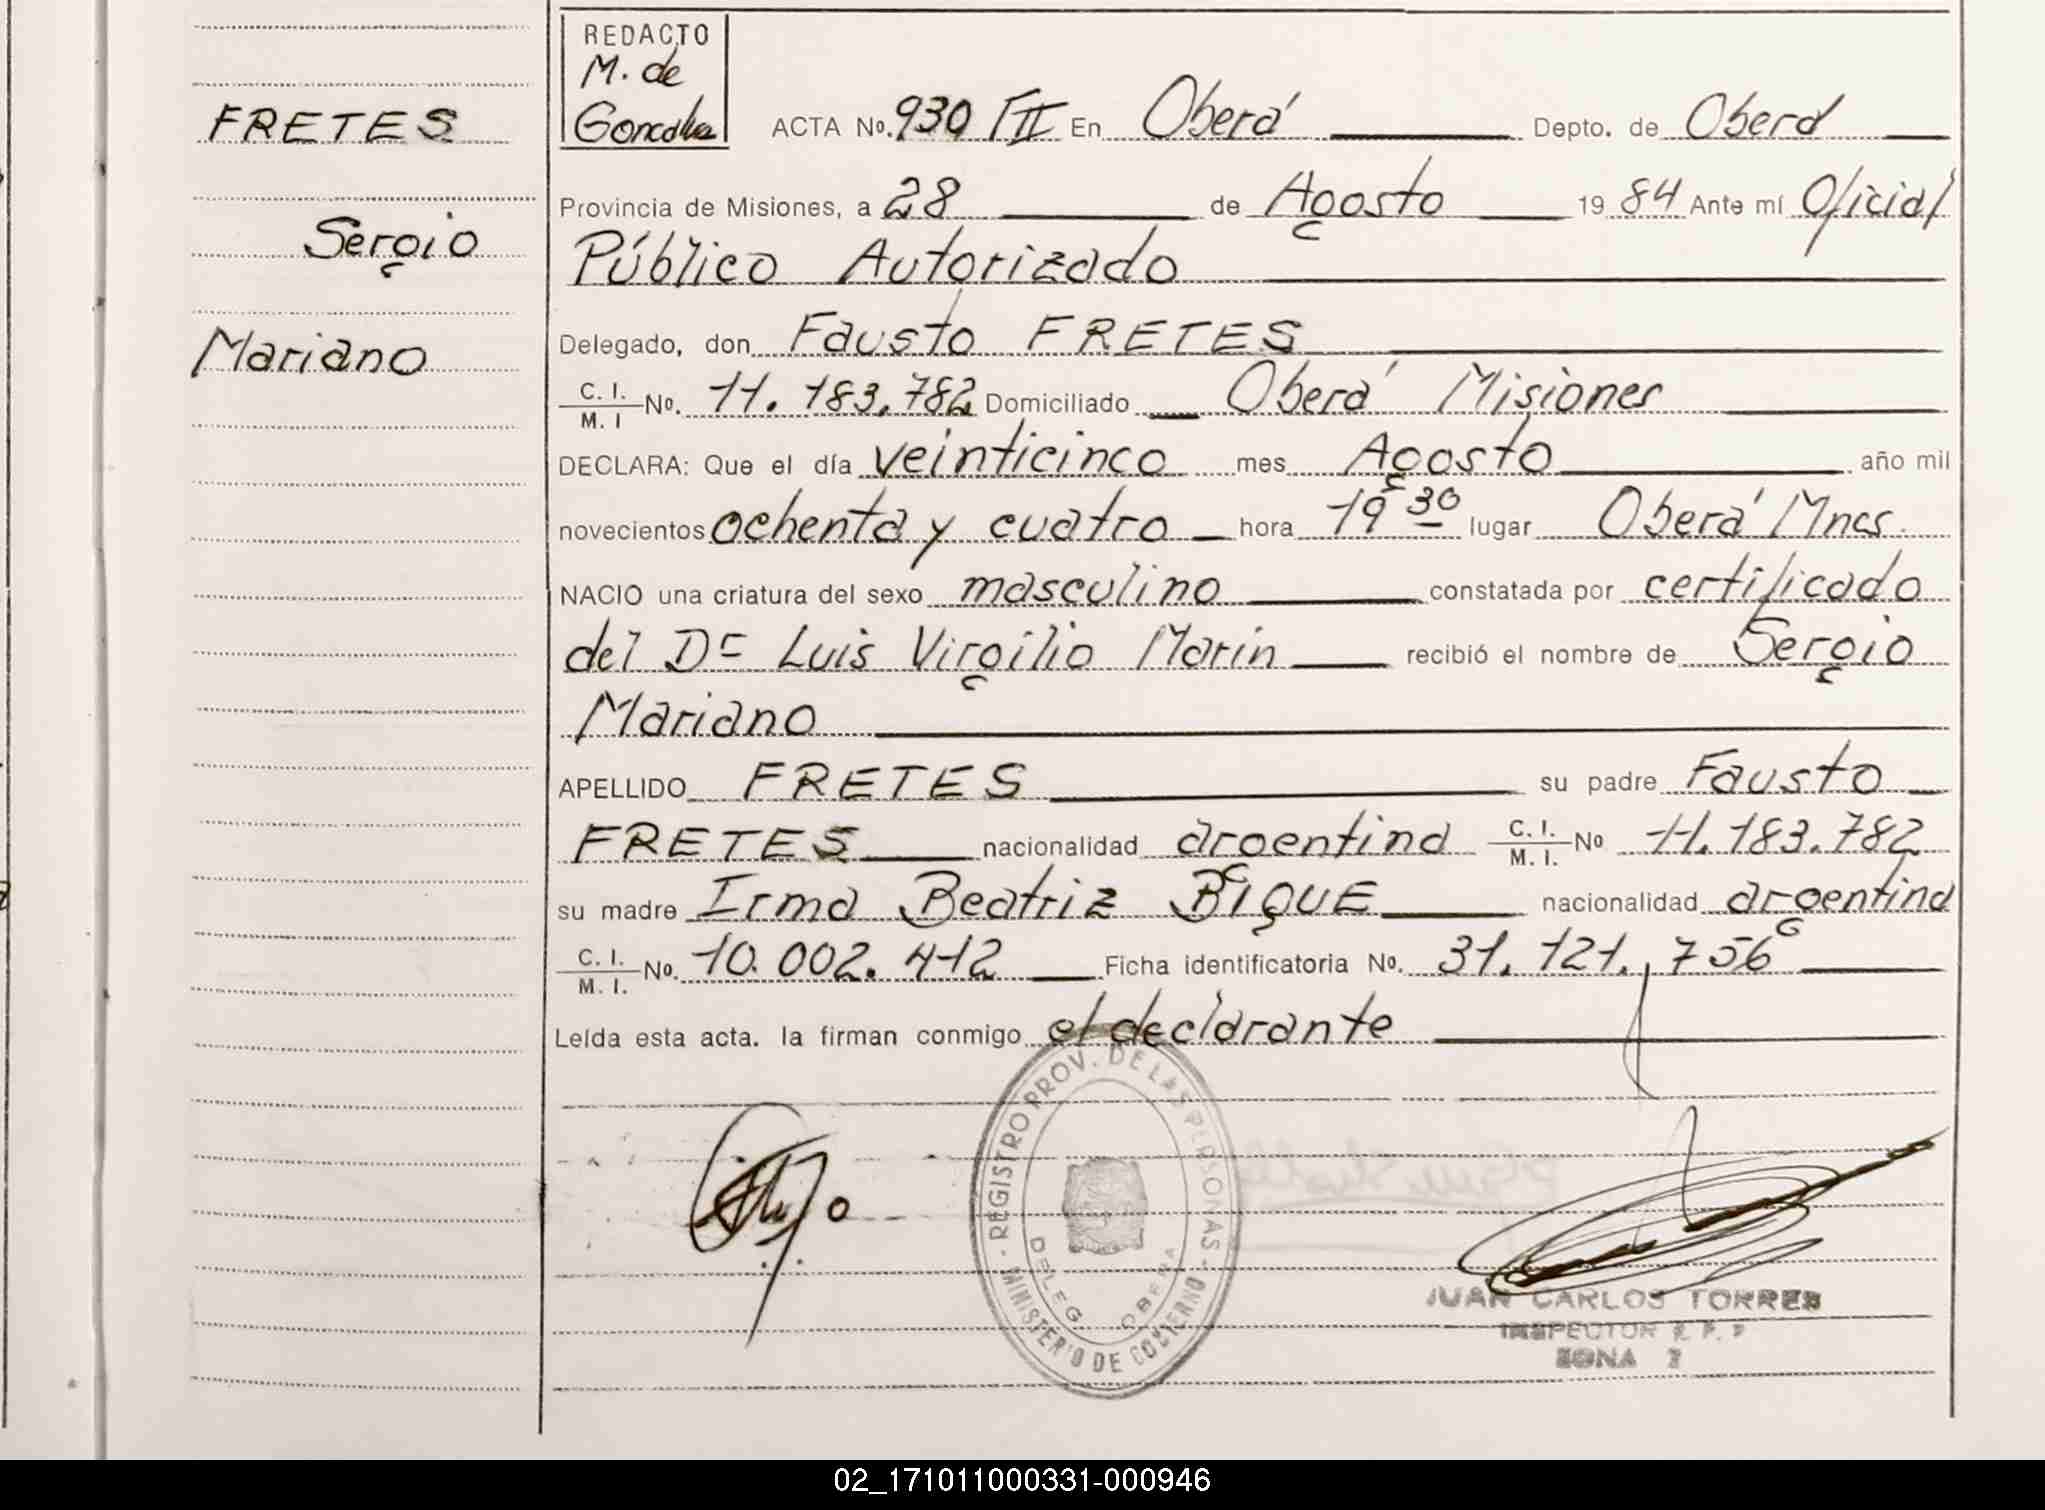 REDACTO
M. de
Gonzalez
FRETES
Sergio
Mariano
ACTA No. 930 TII En Oberá Depto. de Oberá
Provincia de Misiones, a 28 de Agosto 19 84 Ante mí Oficial
Público Autorizado
Delegado, don Fausto FRETES
C. I. / M. I No. 11.183.782 Domiciliado Oberá Misiones
DECLARA: Que el día veinticinco mes Agosto año mil
novecientos ochenta y cuatro hora 19 30 lugar Oberá Mnes.
NACIO una criatura del sexo masculino constatada por certificado
del Dr Luis Virgilio Marin recibió el nombre de Sergio
Mariano
APELLIDO FRETES su padre Fausto
FRETES nacionalidad argentina C. I. / M. I. No 11.183.782
su madre Irma Beatriz BIQUE nacionalidad argentina
C. I. / M. I. No. 10.002.412 Ficha identificatoria No. 31.121.756
Leída esta acta. la firman conmigo el declarante
REGISTRO PROV. DE LAS PERSONAS
MINISTERIO DE GOBIERNO
DELEG. OBERA
JUAN CARLOS TORRES
INSPECTOR R. P. P
ZONA 2
02_171011000331-000946